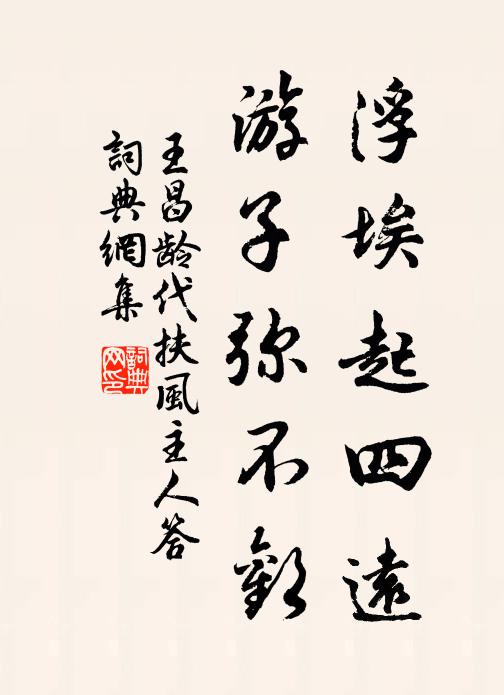 浮埃起四遠
游子弥不歡
王昌龄代扶風主人答
詞典網集
詞典
网印